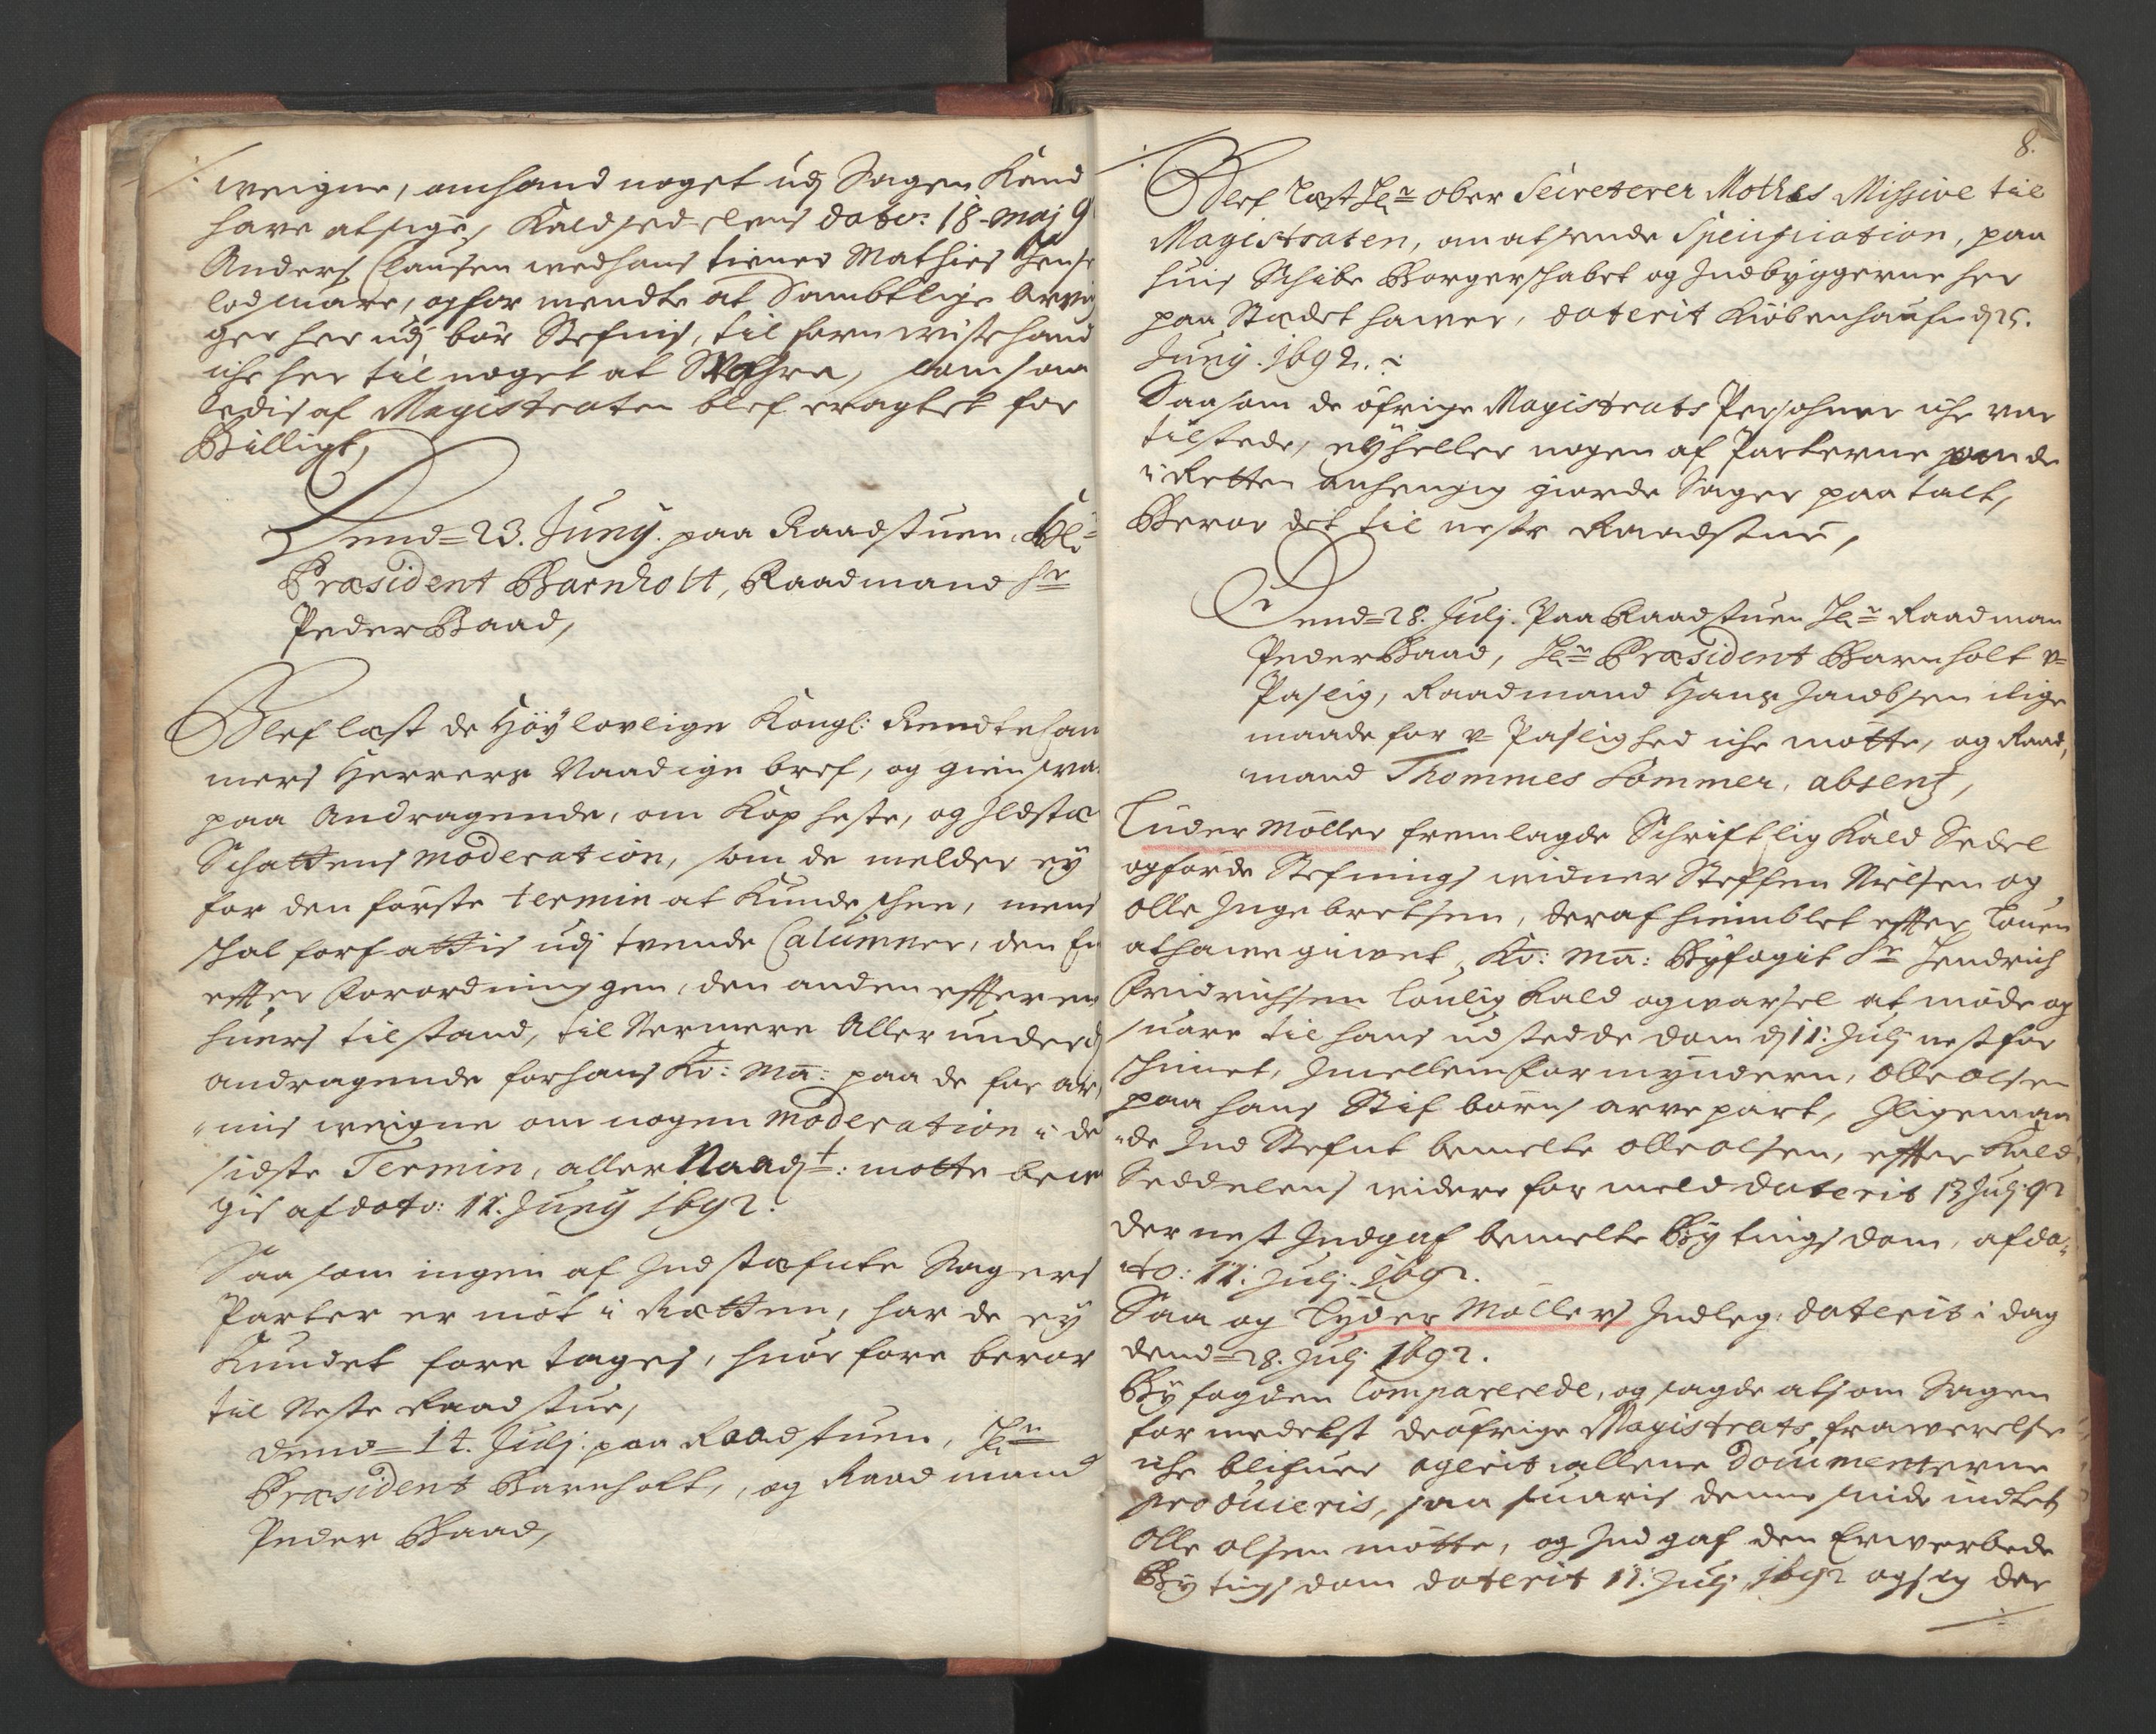 weigne, om hand noget udj Sagen Kand
have at sige, Kaldsedelens dato: 18 maj 9
Anders Clausen wed hans tiener Mathies Jense
lod svare, og formendte at Samtlige Arvin
ger her udj bör Stefnis, til forn wiste hand
iche her til noget at Svahre, som saa
ledis af Magistraten blef eragtet for
Billigt,
Dend 23. Junij. paa Raadstuen,
Præsident Barnholt, Raadmand Sr
Peder Baad,
Blef læst de Höylovlige Kongl: Rendtekam
mers Herrers Naadige bref, og giensva
paa Andragende, om Kop heste, og Ildstæ
Schattens moderation, som de melder ey
for den förste termin at Kunde schee, mens
schal forfattis udj tvende Calumner, den En
effter Forordningen, den anden effter en
huers tilstand, til Nermere Allerunderd
andragende for hans Ko: Ma: paa de for ar
mis weigne om nogen moderation i de
sidste Termin, aller Naadt: motte bew
gis af dato: 11. Junij 1692.
Saasom ingen af Indstæfnte Sagers
Parter er möt i Rætten, har de ey
Kundet foretages, huorfore beror
til Neste Raadstue,
Dend 14. Julj: paa Raadstuen, Hr
Præsident Barnholt, og Raadmand
Peder Baad,
8.
Blef Læst Hr ober Secreterer Mothes Missive til
Magistraten, om at sende Specification, paa
huis Schibe Borgerschabet og Indbyggerne her
paa Stædet hawer, daterit Kiöbenhaufn d 25.
Junij. 1692.
Saasom de öfrige Magistrats Persohner iche var
tilstede, ey heller nogen af Parterne paa de
i Retten anhengig giorde Sager paatalt,
Beror det til neste Raadstue,
Dend 28. Julj. Paa Raadstuen Hr Raadman
Peder Baad, Hr Præsident Barnholt v
Paslig, Raadmand Hans Jacobsen i lige
maade for v Paslighed iche mötte, og Raad,
mand Thommes Sommer, absent,
Lüder Möller fremlagde Schriftlig Kald Sedel
og förde Stefnings widner Steffen Nielsen og
Olle Ingebretsen, deraf hiemblet effter Louen
at hawe giwet, Ko: Ma: Byfogit Sr Hendrich
Fridrichsen Loulig Kald og warsel at möde og
svare til hans udstedde dom d 11: Julj nest for
schinet, Imellem Formyndern, Olle Olsen
paa hans Stif börns arve part, Iligemaa
de Ind Stefnt bemelte Olle Olsen, effter Kald
Seddelens widere formeld daterit 13 Julj 92
Der nest Indgaf bemelte Bytings dom, af da
to: 11: Julj: 1692.
Saa og Lyder Möllers Indleg daterit i dag
dend 28. Julj 1692.
Byfogden Comparerede, og sagde at som Sagen
formedelst de öfrige Magistrats frawerelse
iche blifuer agerit allene Documenterne
producieris, saa suaris denne sinde indtet,
Olle Olsen mötte, og Indgaf den Erwerbede
Bytings dom daterit 11: Julj 1692 og sig der